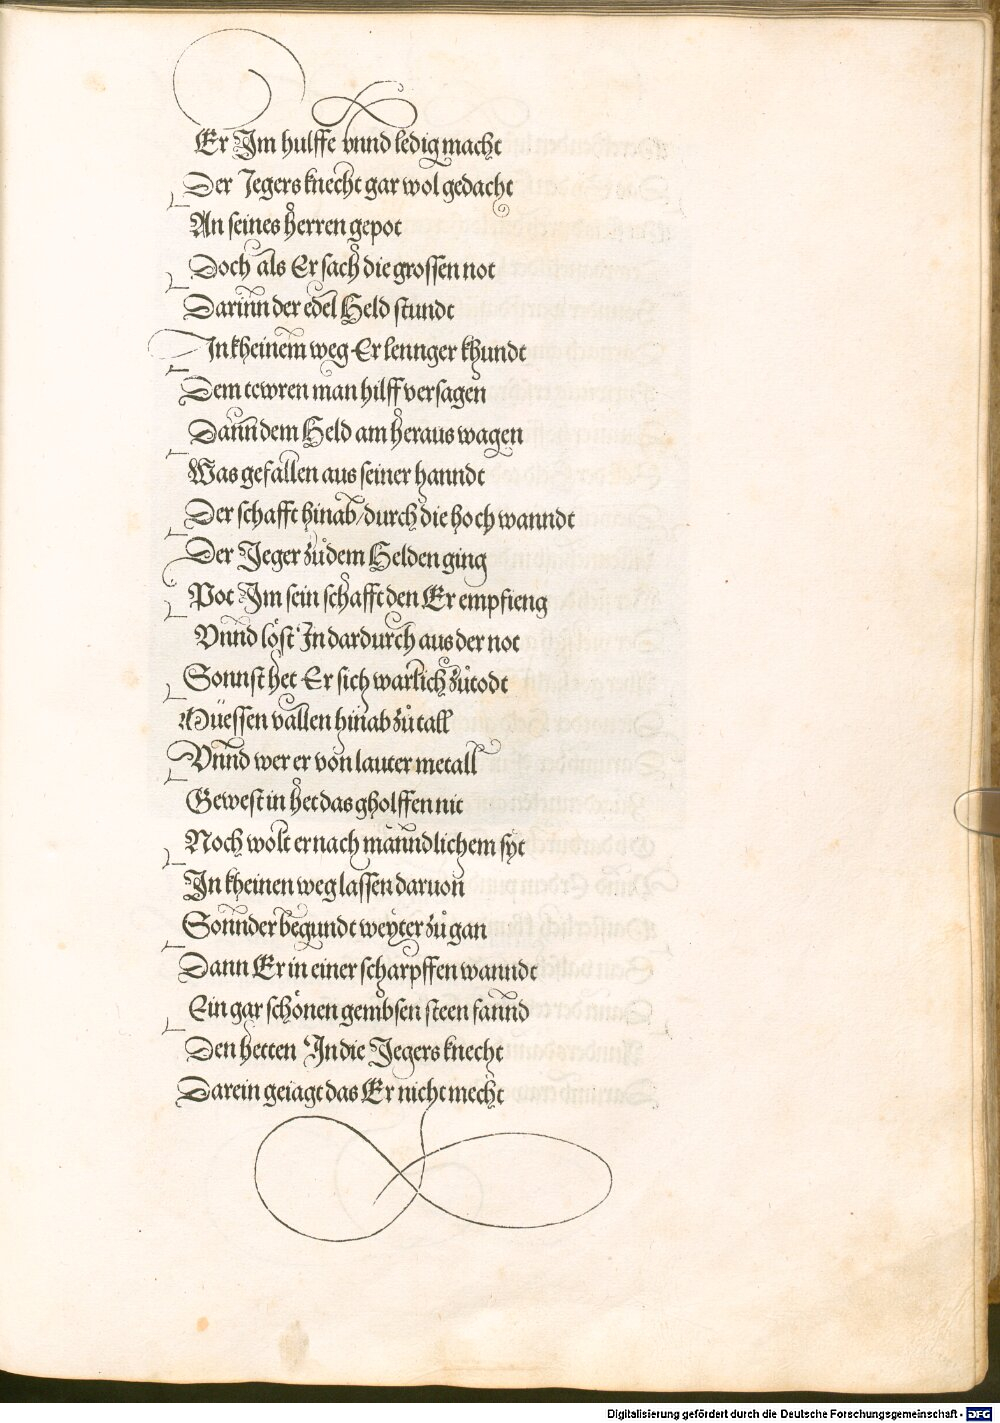 Er Im hulffe vnnd ledig macht
Der Jegersknecht gar wol gedacht
An seines herren gepot
Doch als Er sach die grossen not
Darinn der edel Held stundt
In kheinem weg Er lennger khundt
Dem tewren man hilff versagen
Dann dem Held am heraus wagen
Was gefallen aus seiner hanndt
Der schafft hinab/durch die hoch wanndt
Der Jeger zů dem Helden ging
Pot Im sein schafft den Er empfieng
Vnnd löst In dardurch aus der not
Sonnst het Er sich warlich zů todt
Müessen vallen hinab zů tall
Vnnd wer er von lauter metall
Gewest in het das gholffen nit
Noch wolt er nach männdlichem syt
In kheinen weg lassen daruon
Sonnder begundt weyter zů gan
Dann Er in einer scharpffen wanndt
Ein gar schönen gembsen steen fannd
Den hetten In die Jegersknecht
Darein geiagt das Er nicht mecht
Digitalisierung gefördert durch die Deutsche Forschungsgemeinschaft - DFG